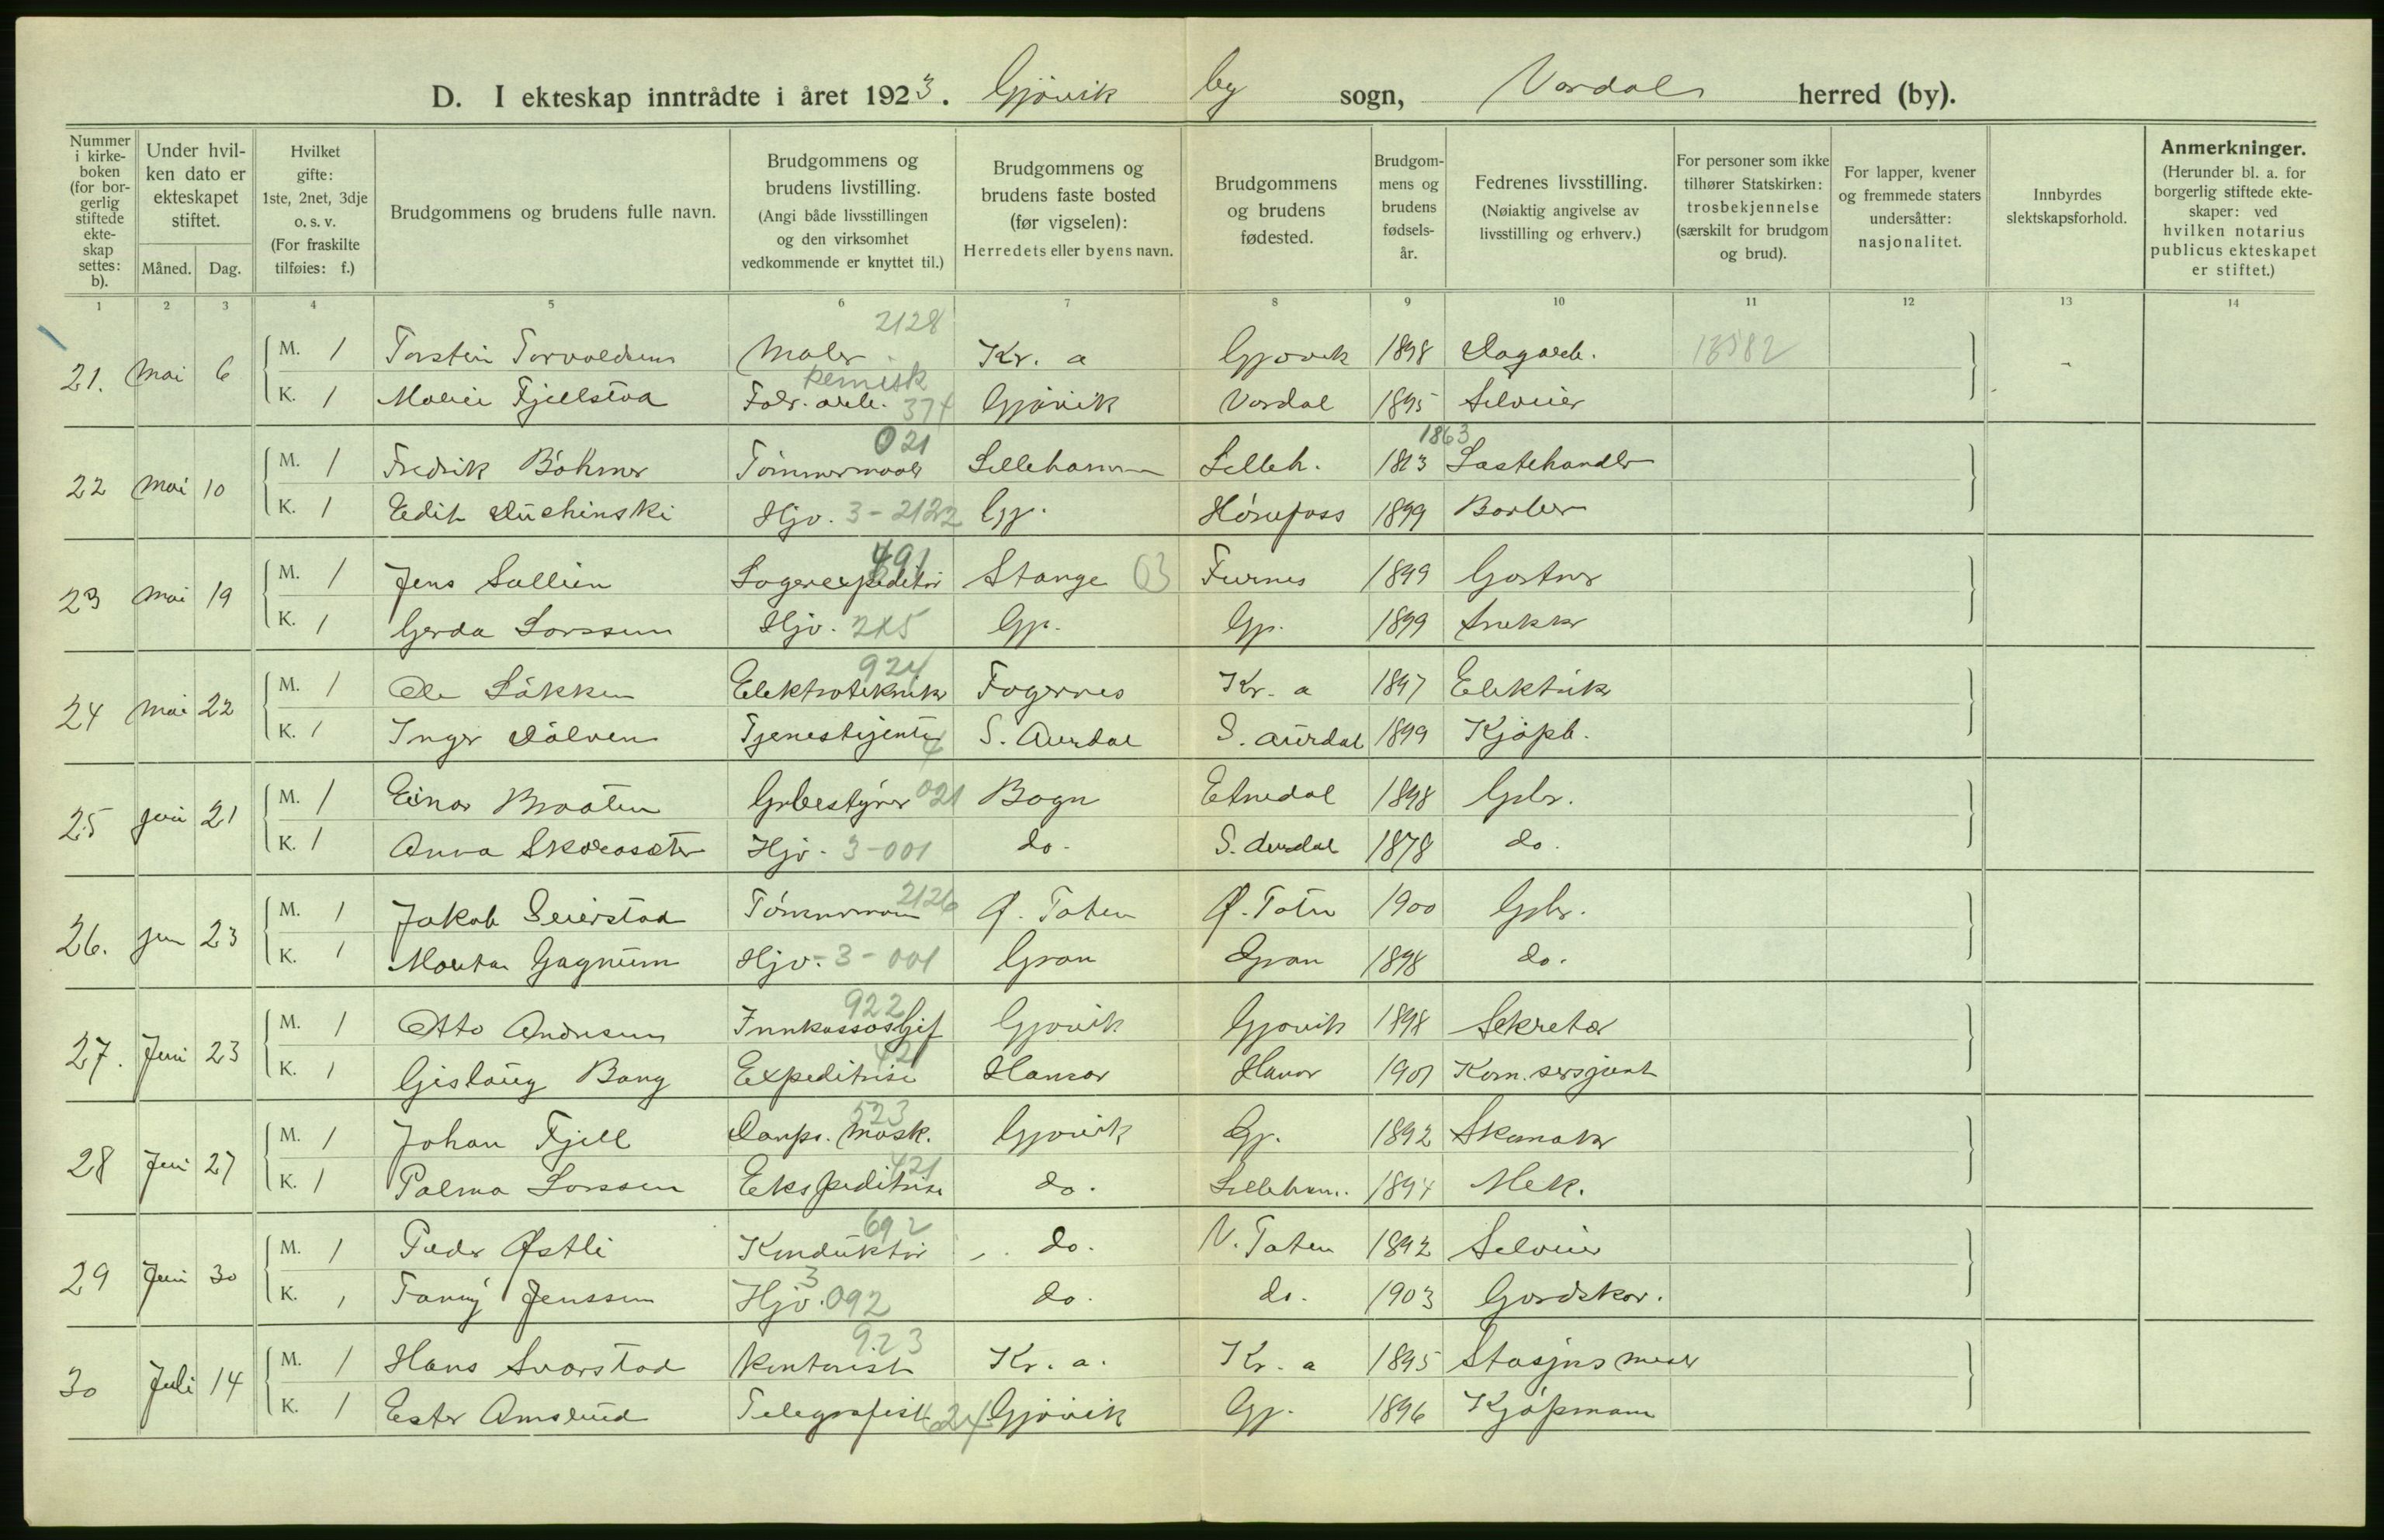 D. I ekteskap inntrådte i året 1923. Gjövik by sogn, Vardal herred (by).
Nummer i kirke-boken (for bor-gerlig stiftede ekte-skap settes: b).
Under hvil-ken dato er ekteskapet stiftet.
Måned. Dag.
Hvilket gifte: 1ste, 2net, 3dje o. s. v. (For fraskilte tilføies: f.)
Brudgommens og brudens fulle navn.
Brudgommens og brudens livstilling. (Angi både livsstillingen og den virksomhet vedkommende er knyttet til.)
Brudgommens og brudens faste bosted (før vigselen): Herredets eller byens navn.
Brudgommens og brudens fødested.
Brudgom-mens og brudens fødsels-år.
Fedrenes livsstilling. (Nøiaktig angivelse av livsstilling og erhverv.)
For personer som ikke tilhører Statskirken: trosbekjennelse (særskilt for brudgom og brud).
For lapper, kvener og fremmede staters undersåtter: nasjonalitet.
Innbyrdes slektskapsforhold.
Anmerkninger. (Herunder bl. a. for borgerlig stiftede ekte-skaper: ved hvilken notarius publicus ekteskapet er stiftet.)
1 2 3 4 5 6 7 8 9 10 11 12 13 14
2128
21. Mai 6 M. 1 Torstein Torvaldsen Maler Kr. a Gjøvik 1898 Dagarb. 13582
kemisk
K. 1 Fjellstad Fabr. arb. 374 Gjövik Vardal 1895 Selveier
021 1863
22 Mai 10 M. 1 Fredrik Böhmer Tömmermaaler Lillehammer Lilleh. 1813 Lastehandler
K. 1 Edit Duchinski Hjv. 3-2122 Gj. Hönefoss 1899 Barber
491
23 Mai 19 M. 1 Jens Sollien Lagerexpeditör Stange 03 Furnes 1899 Gartner
K. 1 Gerda Larssen Hjv. 215 Gj. Gj. 1899 Snekker
924
24 Mai 22 M. 1 Ole Lökken Elektrotekniker Fagernes Kr. a 1897 Elektrik
K. 1 Inger Dölven Tjenestejente 4 S. Aurdal S. Aurdal 1899 Kjöpb.
25 Juni 21 M. 1 Einar Braaten Grbestyrer 021 Bagn Etnedal 1898 Gbr.
K. 1 Anna Skoraseter Hjv. 3-001 do. S. Aurdal 1878 do.
2126
26. Jun 23 M. 1 Jakob Seierstad Tömmerman Ø. Toten Ø. Toten 1900 Gbr.
K. 1 Marta Gagnum Hjv. 3-001 Gran Gran 1898 do.
922
27. Juni 23 M. 1 Otto Andresen Innkassosjef Gjøvik Gjøvik 1898 Sekretær
421
K. 1 Gislaug Bang Expeditrise Hamar Hamar 1901 Kom. sersjant
523
28 Juni 27 M. 1 Johan Fjell Damps. mask. Gjøvik Gj. 1892 Skomaker
421
K. 1 Palma Larssen Ekspeditrise do. Lilleham. 1894 Mek.
692
29 Juni 30 M. 1 Peder Østli Konduktör do. V. Toten 1892 Selveier
3
K. 1 Fanny Jenssen Hjv. 092 do. do. 1903 Gardskar.
923
30 Juli 14 M. 1 Hans Svarstad Kontorist Kr. a. Kr. a 1895 Stasjns mester
K. 1 Ester Amslund Telegrafist 624 Gjövik Gj. 1896 Kjöpmann